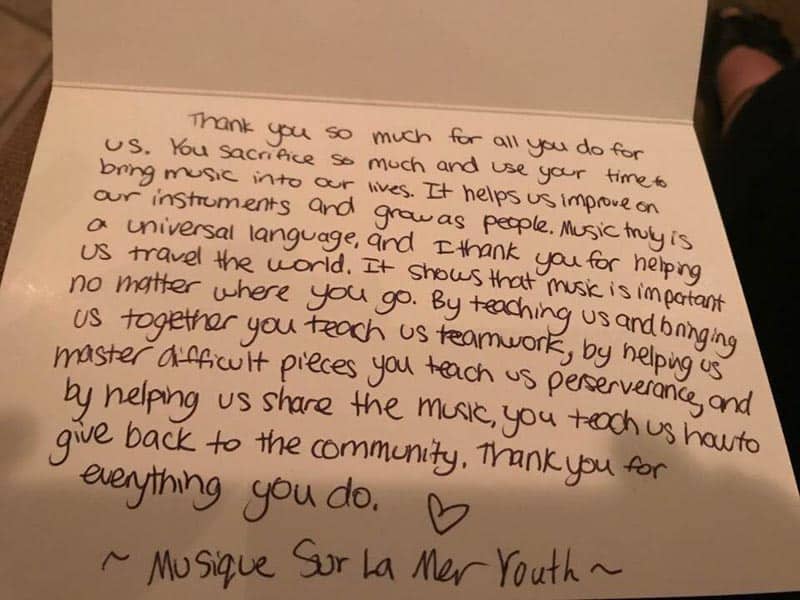 Thank you so much for all you do for
us. You sacrifice so much and use your time to
bring music into our lives. It helps us improve on
our instruments and grow as people. Music truly is
a universal language, and I thank you for helping
us travel the world. It shows that music is important
no matter where you go. By teaching us and bringing
us together you teach us teamwork, by helping us
master difficult pieces you teach us perserverance, and
by helping us share the music, you teach us how to
give back to the community. Thank you for
everything you do. ♡
~ Musique Sur La Mer Youth ~